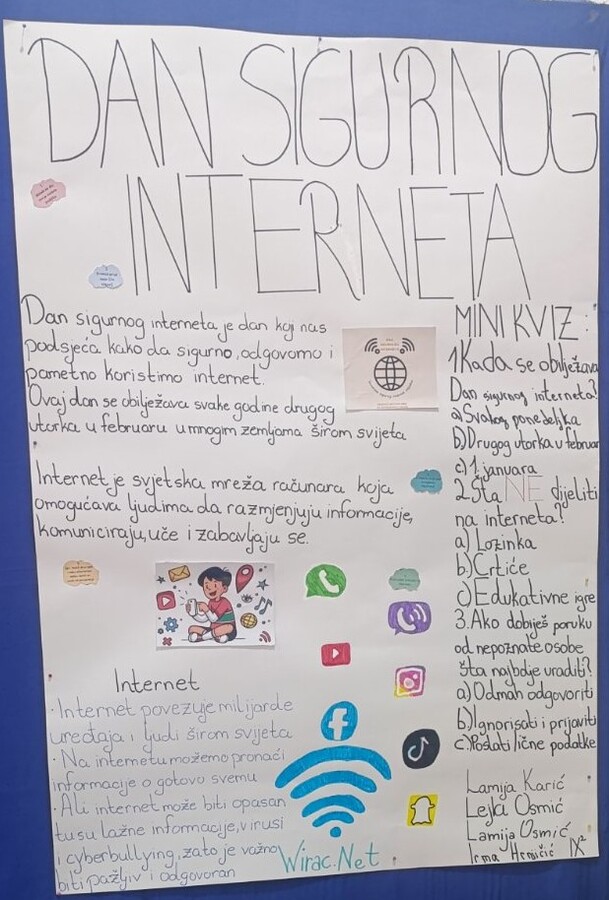 DAN SIGURNOG
INTERNETA
Dan sigurnog interneta je dan koji nas
podsjeća kako da sigurno, odgovorno i
pametno koristimo internet.
Ovaj dan se obilježava svake godine drugog
utorka u februaru u mnogim zemljama širom svijeta
Internet je svjetska mreža računara koja
omogućava ljudima da razmjenjuju informacije,
komuniciraju, uče i zabavljaju se.
Internet
· Internet povezuje milijarde
uređaja i ljudi širom svijeta
· Na internetu možemo pronaći
informacije o gotovo svemu
· Ali internet može biti opasan
tu su lažne informacije, virusi
i cyberbullying, zato je važno
biti pažljiv i odgovoran
Wirac.Net
MINI KVIZ:
1 Kada se obilježava
Dan sigurnog interneta?
a) Svakog ponedeljka
b) Drugog utorka u februar
c) 1. januara
2. Šta NE dijeliti
na interneta?
a) Lozinka
b) Crtiće
c) Edukativne igre
3. Ako dobiješ poruku
od nepoznate osobe
šta najbolje uraditi?
a) Odmah odgovoriti
b) Ignorisati i prijaviti
c) Poslati lične podatke
Lamija Karić
Lejla Osmić
Lamija Osmić
Irma IX²